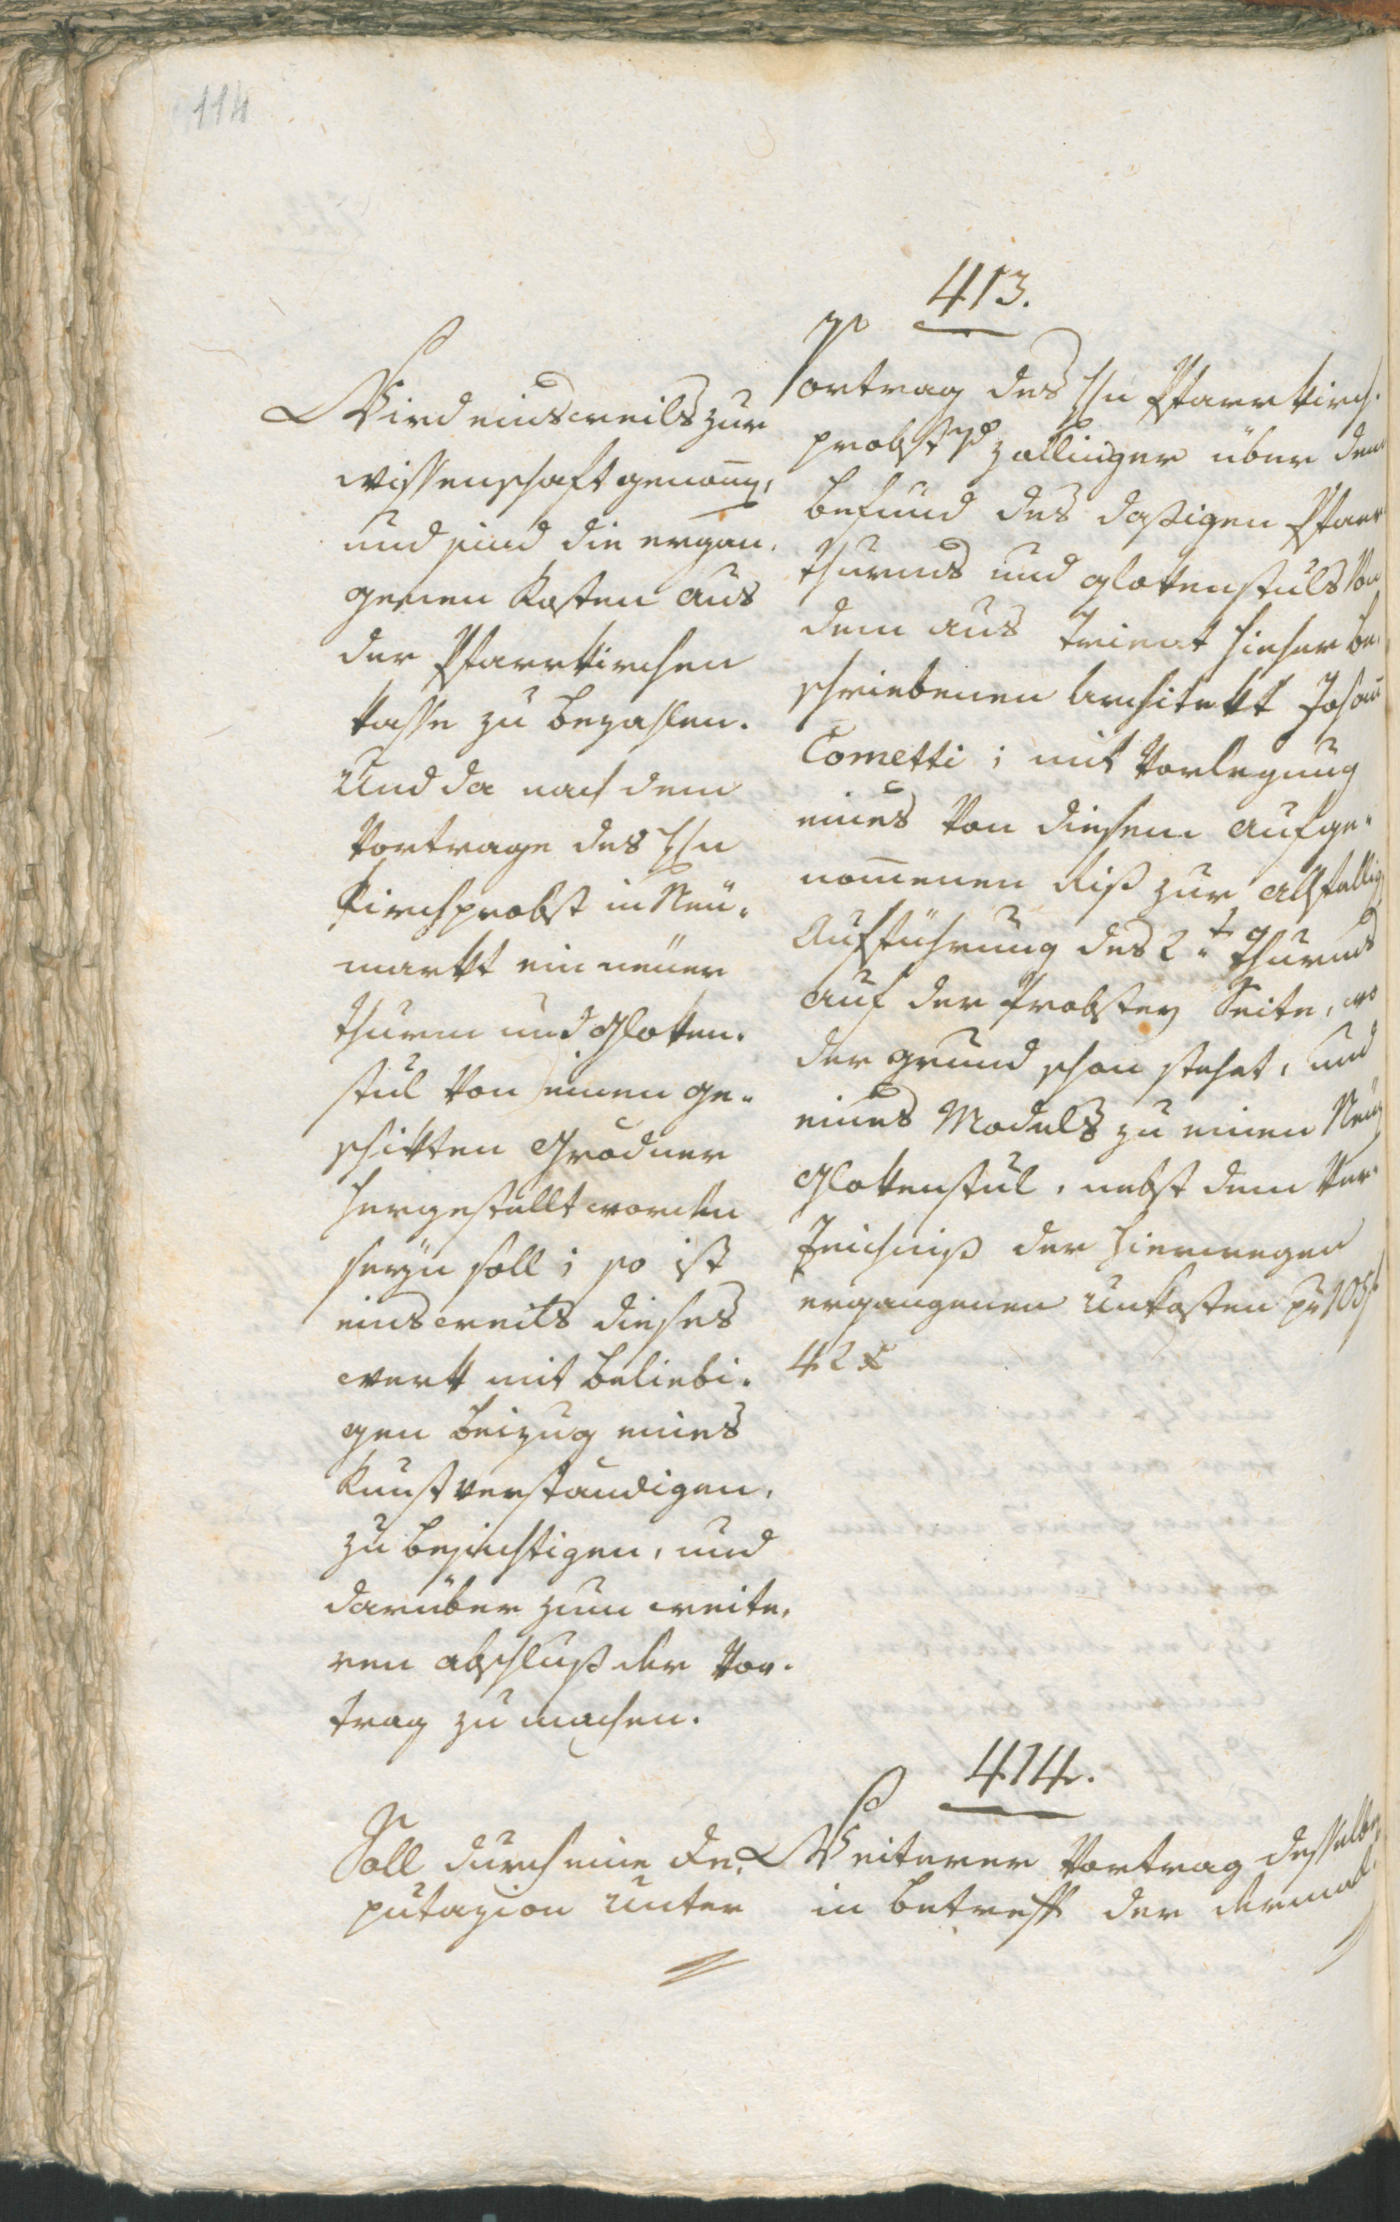 114
413.
Vortrag des H̅n Pfarrkirch-
probst v. Zallinger über den
befund des dasigen Pfarr
thurms und glokenstuls von
dem aus Trient hieher be-
schriebenen Architekt Johan̅
Cometti; mit Vorlegung
eines von diesem aufge-
nom̅enen Riß zur allfällig
Aufführung des 2t. Thurms
auf der Probstey Seite, wo
der grund schon stehet, und
eines Models zu einen Neu
Glokenstul, nebst dem Ver-
zeichniß der hierwegen
ergangenen Unkösten pr 105 f
42 x
Wird einsweils zur
wissenschaft genom̅,
und sind die ergan-
genen Kösten aus
der Pfarrkirchen
kasse zu bezahlen.
Und da nach dem
Vortrage des H̅n
Kirchprobst in Neu-
markt ein neuer
thurm und Gloken-
stul von einen ge-
schikten Grödner
hergestellt worden
seyn soll; so ist
einsweils dieses
werk mit beliebi-
gen beizug eines
Kunstverständigen,
zu besichtigen, und
darüber zum weite-
ren abschluß der Vor-
trag zu machen.
414.
Weiterer Vortrag desselben
in betreff der dermal
Soll durch eine De-
putazion unter